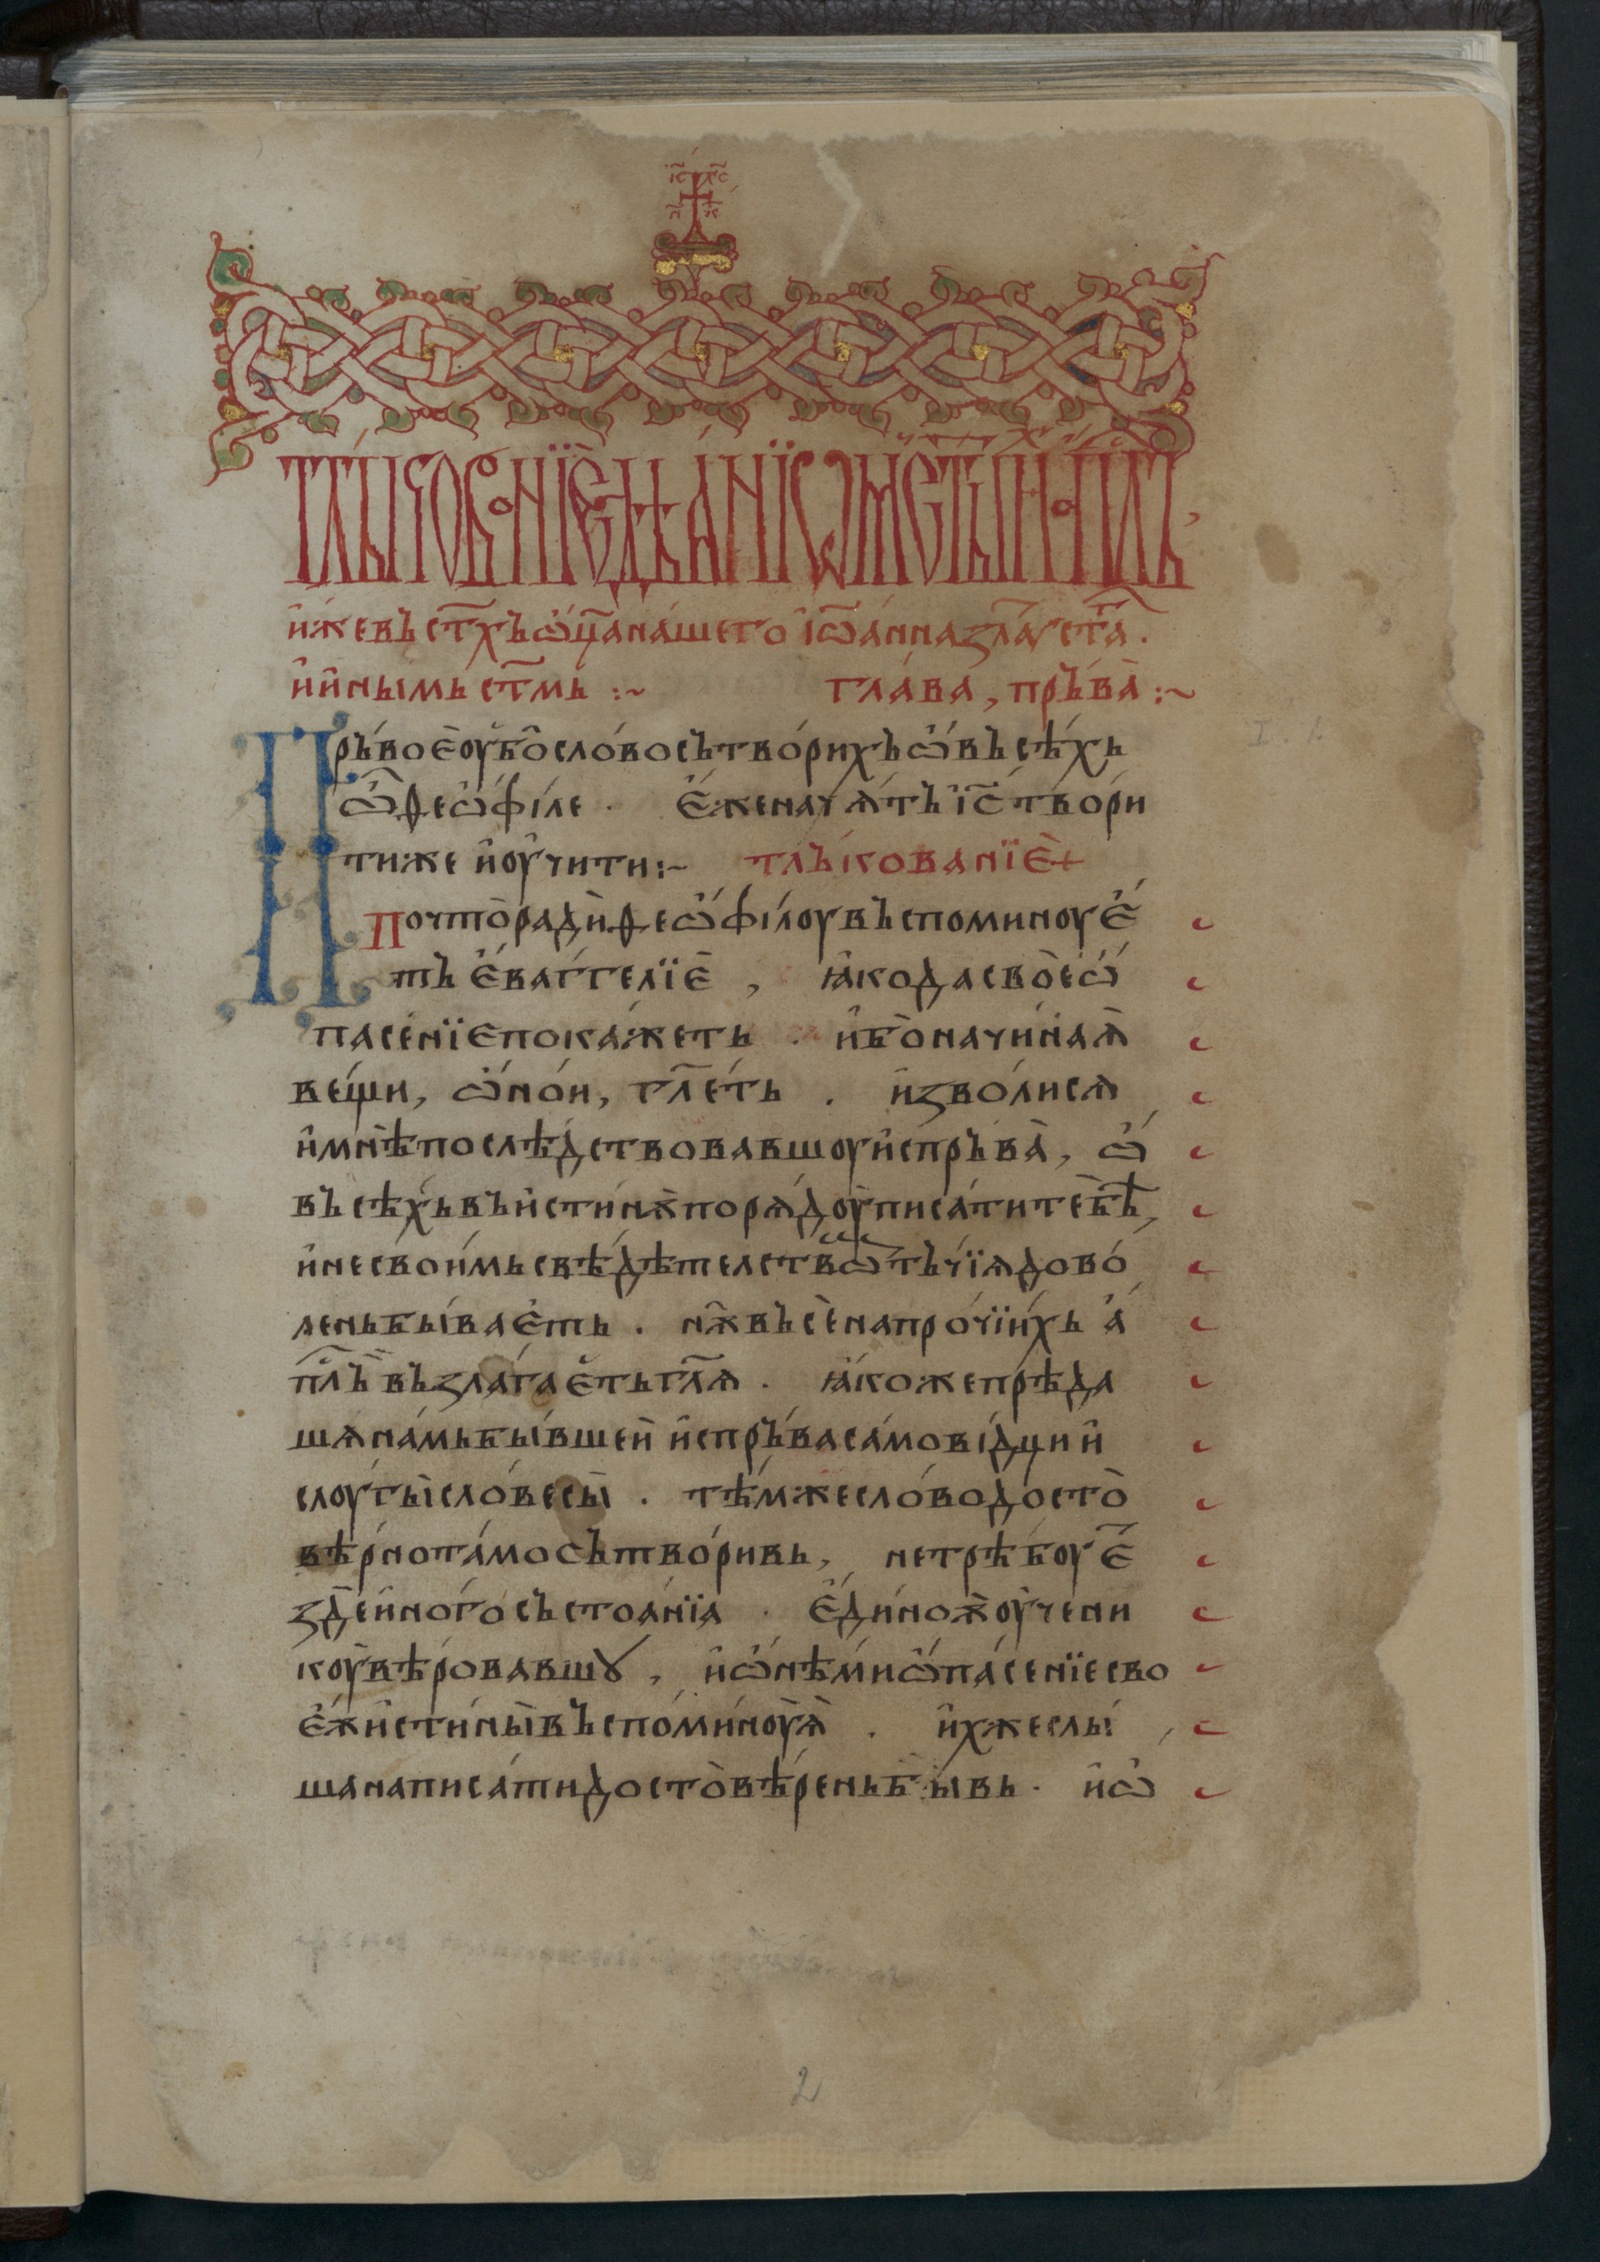 і҃с х҃с
н҃ к҃
тлъкованїе дѣанїѡмь ст҃ы
и́же въ ст҃хъ ѡ҆ц҃а на́шего і҆ѡ҃а́нна зла҃уст҃а .
и҆ и҆ны́мь ст҃мь :~ гла́ва , пръ́ва̀ :~
Пръ́воѐ оу҆бо̑ сло́во сътво́рихъ ѡ҆ въсѣ́хь
ѽ ѳео҆́фі́ле . є҆́же нач ѧ́тъ і҆с҃ тво́ри
ти же и҆ оу҆чи ти :~ тлъ́кованїѐ +
По что̀ ра́ди̏ ѳеѡ҆́фі́лоу въспоминоує҆́
ть є҆́ва́ггелїѐ , ꙗ҆́ко да сво̀е ѡ҆́
пасе́нїе пока́жеть . и҆́бо̀ начи́наѧ̀
ве́щи , ѡ҆́но́и , гл҃е́ть . и҆зво́ли сѧ
и҆ мнѣ̀ послѣ́дствовавшоу и҆спръ́ва̀ , ѡ҆́
въсѣ́хь въ и҆сти́нѫ̀ по рѧ́доу̀ писа́ти те́бѣ̀ ,
и҆ не свои́мь свѣ́дѣтелствѡ҃ тъ́чїѧ дово́
лень быва́є҆ть . нѫ̑ въсѐ на про́чїи́хь а҆́
пл҃ъ възлага́є҆ть гл҃ѧ . ꙗ҆́коже прѣ́да
шѧ на́мь бы́вшеи̏ и҆спръ́ва са́мові́дци и҆
слоугы̀ сло́весы̀ . тѣ́мже сло́во досто̀
вѣ́рно та́мо сътво́ривь , не трѣ́боує҆́
зде̏ и҆но́го състоа́нїа . є҆́ди́ноѫ̀ оу҆че ни
коу̀ вѣ́ровавшꙋ , и҆ ѡ҆́ нѣ́ми ѡ҆́пасе́нїе сво
є҆́ѫ̀ и҆сти́ны̀ въспо́миноуѧ̀ . и҆хже слы́
ша написа́ти досто̀вѣ́рень бы́вь . и҆ ѡ҆
2